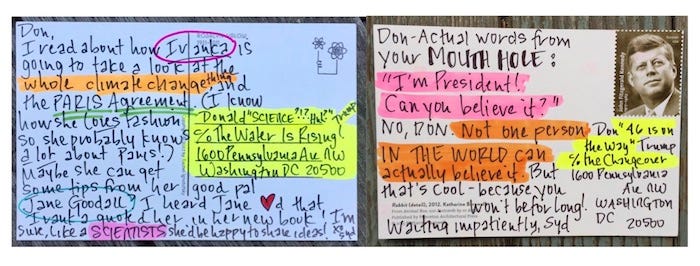 Don,
I read about how Ivanka is
going to take a look at the
whole climate change thing
and
the PARIS Agreement. (I know
how she loves fashion
so she probably knows
a lot about Paris!)
Maybe she can get
some tips from her good pal
Jane Goodall! I heard Jane ♥d that
Ivanka quoted her in her new book! I'm
sure, like a SCIENTISTS she'd be happy to share ideas! XO
Syd
Donald "SCIENCE?!? Ha!" Trump
% The Water Is Rising!
1600 Pennsylvania Ave NW
Washington DC 20500
Don-Actual words from
your MOUTH HOLE:
"I'm President!
Can you believe it?"
NO, DON. Not one person
IN THE WORLD can
actually believe it. But
that's cool-because you
won't be for long!
Waiting impatiently, Syd
Don "46 is on
the Way" Trump
% the Changeover
1600 Pennsylvania
Ave NW
WASHINGTON
DC 20500
Rabbit (detail), 2012. Katherine